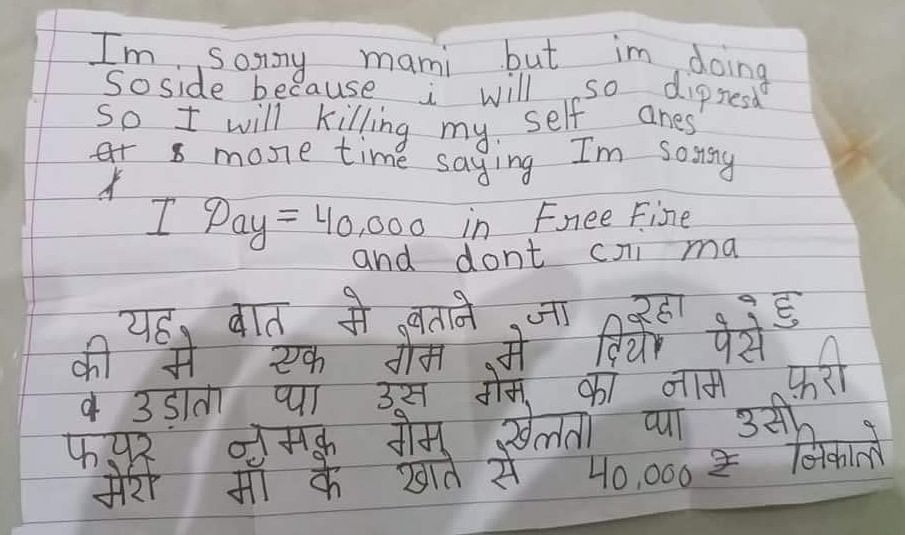 Im sorry mami but im doing
Soside because i will so dipresd
So I will killing my self anes
more time saying Im sorry
I Pay = 40,000 in Free Fire
and dont cri ma
यह बात मे बताने जा रहा हु
की मे एक गेम मे दियो पेसे
उड़ाता था उस गेम का नाम फ़री
फयर नमक गेम खेलता था उसी
मेरी माँ के खाते से 40,000 ₹ निकाले